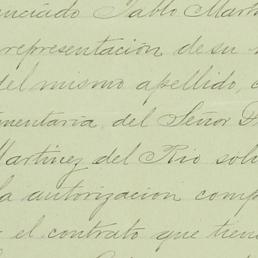 unciado Pablo Mart
representación de su
del mismo apellido,
mentaría, del Señor
Martinez del Rio soli
la autorizacion comp
el contrato que tien